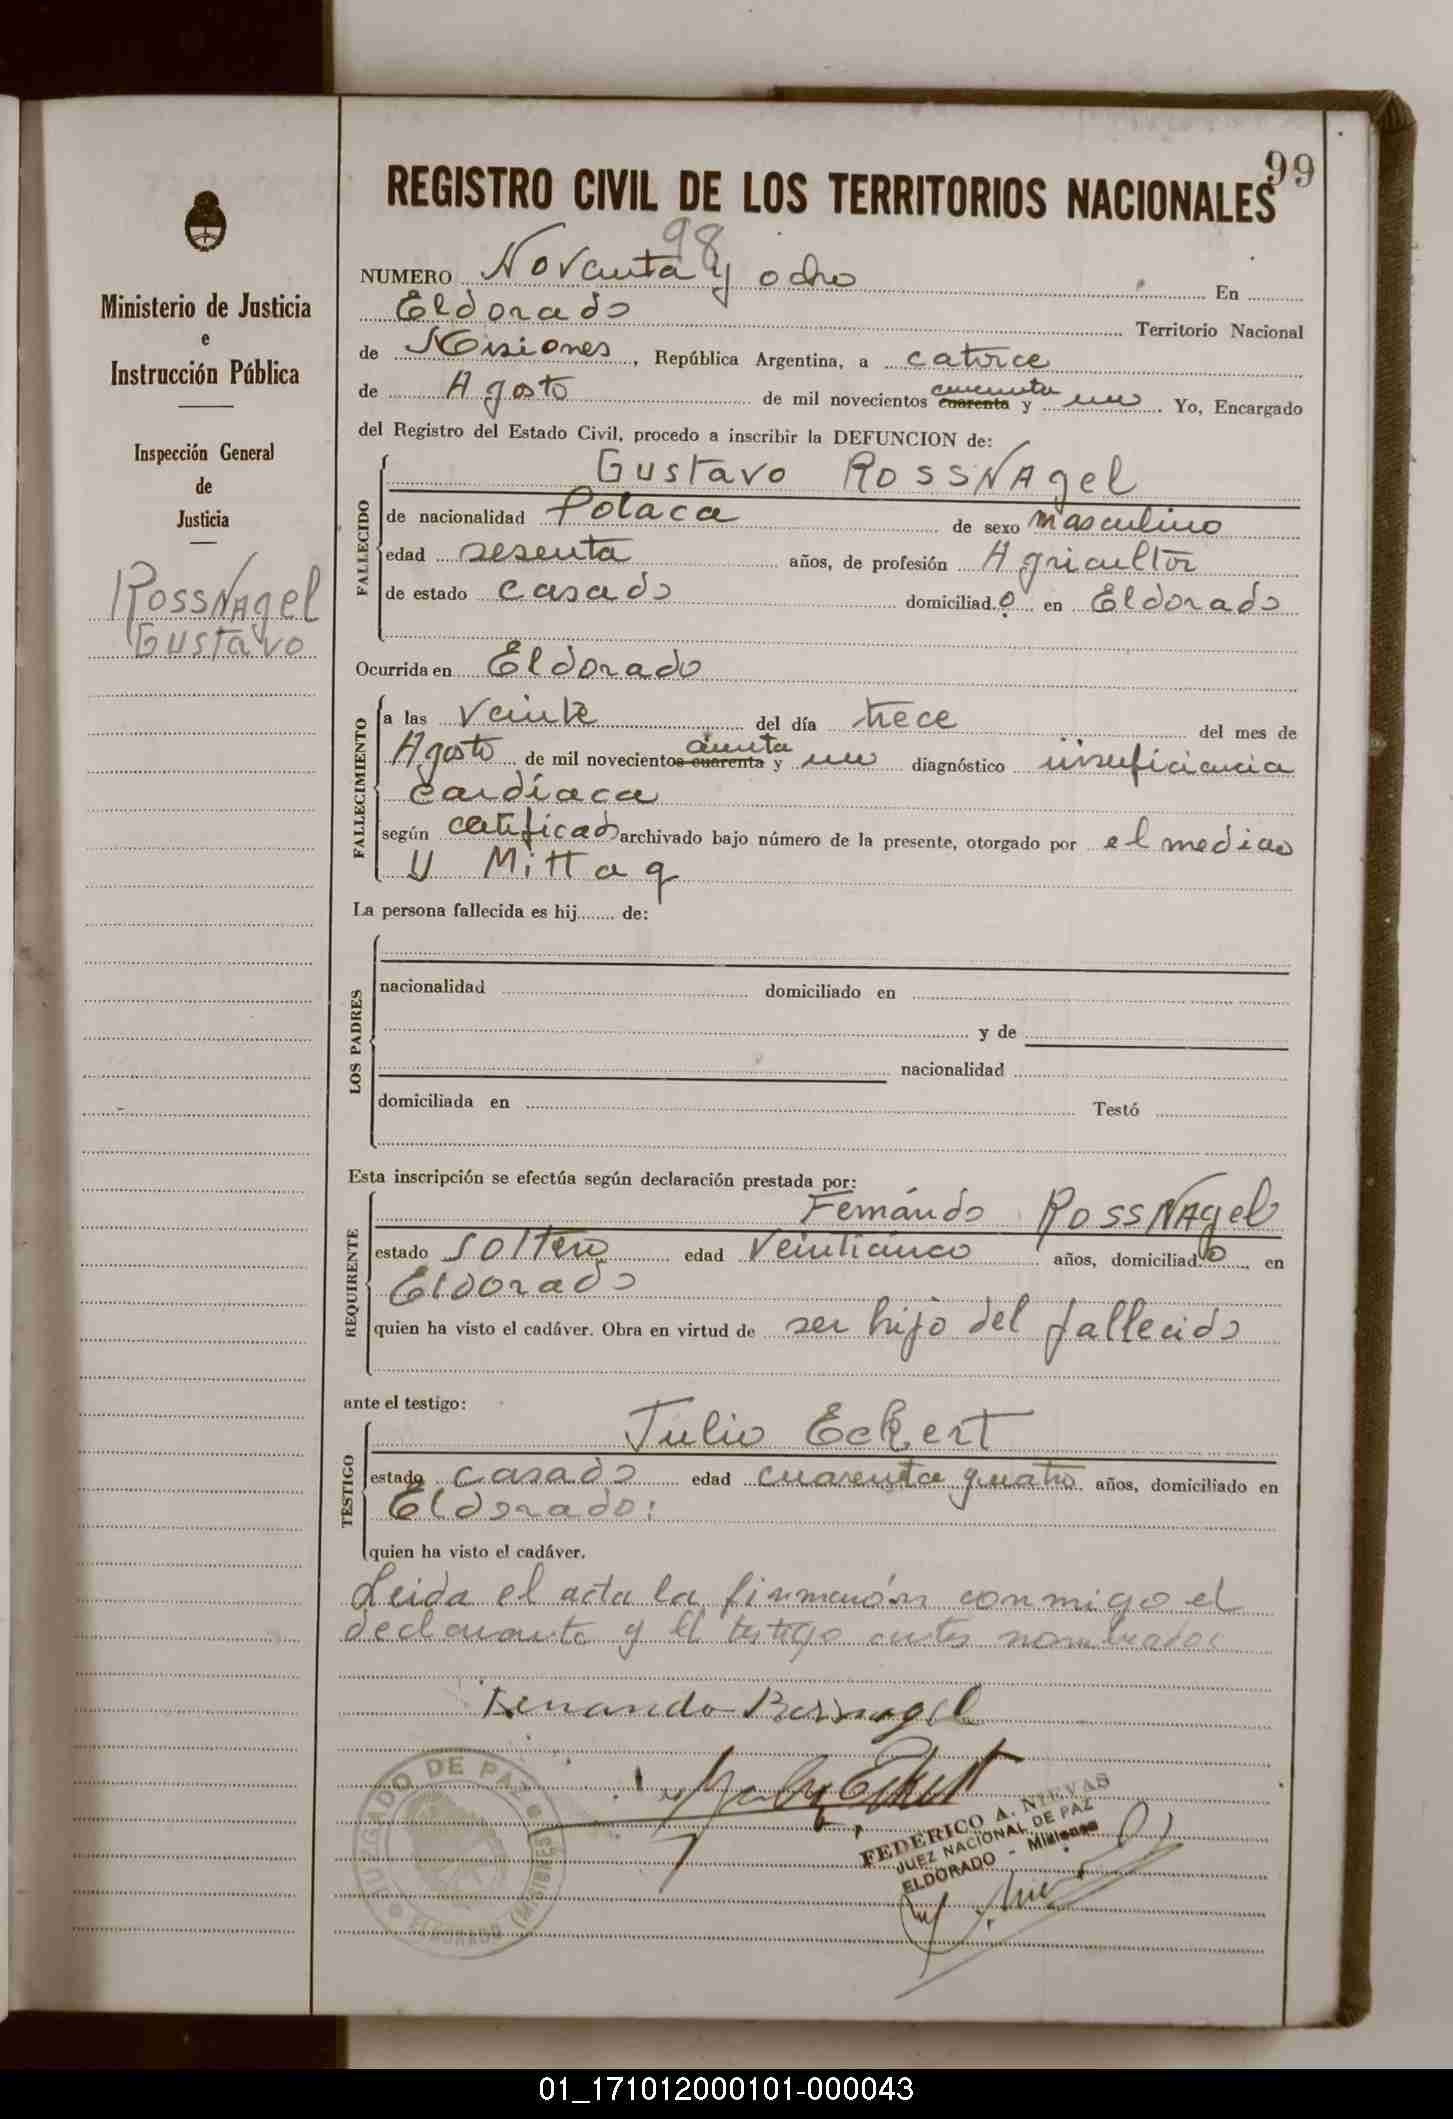 99
REGISTRO CIVIL DE LOS TERRITORIOS NACIONALES
98
NUMERO Noventa y ocho En
Eldorado Territorio Nacional
de Misiones, República Argentina, a catorce
de Agosto de mil novecientos cuarenta cincuenta y uno. Yo, Encargado
del Registro del Estado Civil, procedo a inscribir la DEFUNCION de:
Ministerio de Justicia
e
Instrucción Pública
Inspección General
de
Justicia
RossNagel
Gustavo
FALLECIDO
Gustavo RossNagel
de nacionalidad Polaca de sexo masculino
edad sesenta años, de profesión Agricultor
de estado casado domiciliado en Eldorado
Ocurrida en Eldorado
FALLECIMIENTO
a las veinte del día trece del mes de
Agosto de mil novecientos cuarenta y uno diagnóstico insuficiencia
cardíaca
según certificado archivado bajo número de la presente, otorgado por el medico
U Mittag
La persona fallecida es hij de:
LOS PADRES
nacionalidad domiciliado en
y de
nacionalidad
domiciliada en Testó
Esta inscripción se efectúa según declaración prestada por:
REQUIRENTE
Fernándo RossNagel
estado soltero edad Veinticinco años, domiciliado en
Eldorado
quien ha visto el cadáver. Obra en virtud de ser hijo del fallecido
ante el testigo:
TESTIGO
Julio Eckert
estado casado edad cuarenta y cuatro años, domiciliado en
Eldorado:
quien ha visto el cadáver.
Leida el acta la firmarón conmigo el
declarante y el testigo antes nombrados
Fernando Rossnagel
Julio Eckert
JUZGADO DE PAZ
ELDORADO (MISIONES)
FEDERICO A. NIEVAS
JUEZ NACIONAL DE PAZ
ELDORADO - Misiones
01_171012000101-000043